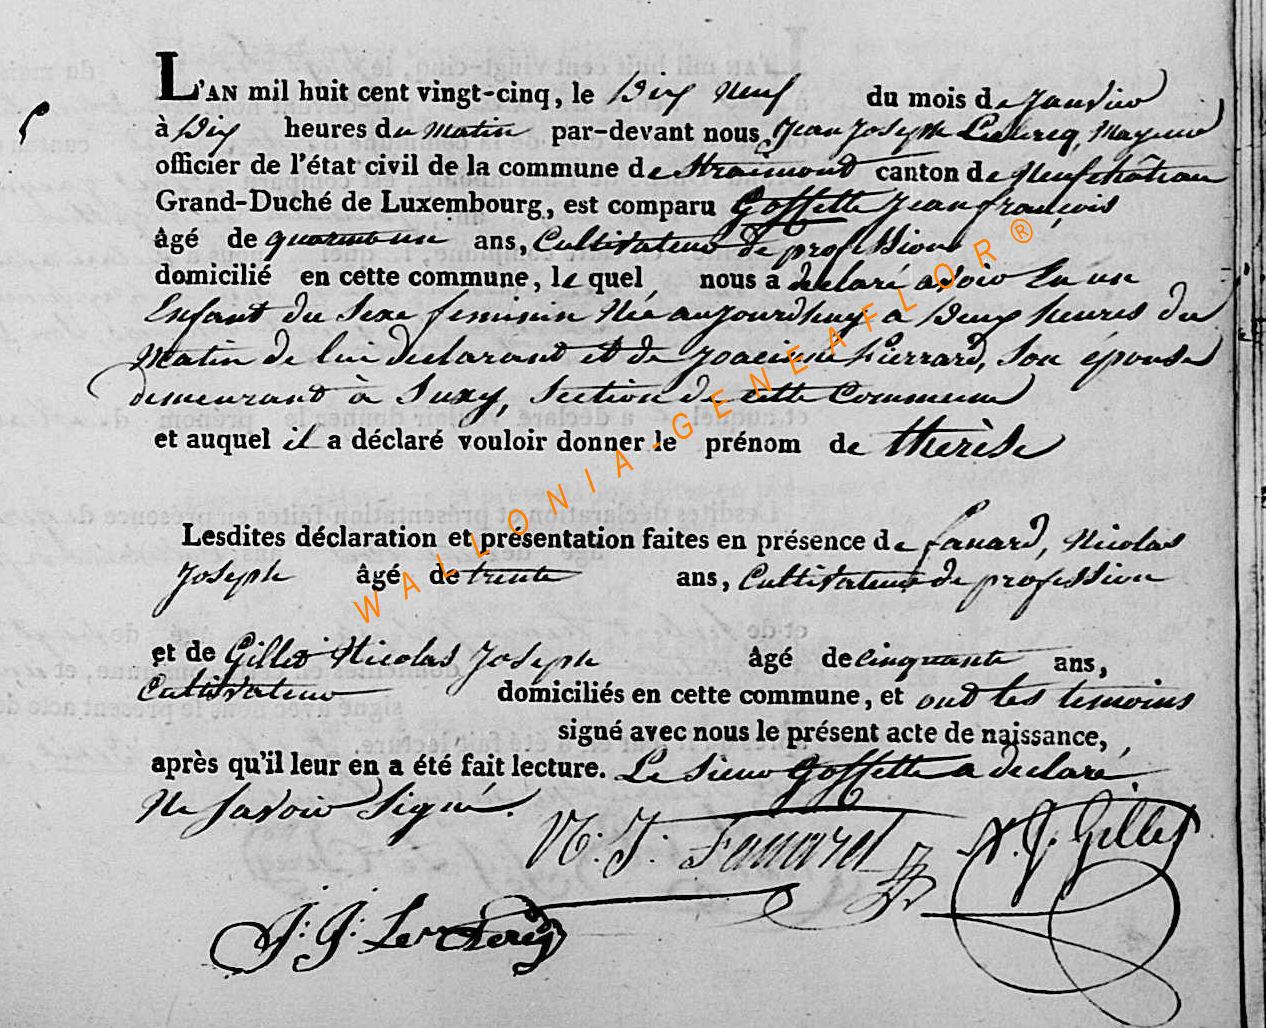 L'AN mil huit cent vingt-cinq, le Dix neuf du mois de Janvier
à Dix heures du matin par-devant nous Jean Joseph Leclercq, Mayeur
officier de l'état civil de la commune de Straimont canton de Neufchâteau
Grand-Duché de Luxembourg, est comparu Goffette Jean françois
âgé de quarante un ans, Cultivateur de profession
domicilié en cette commune, le quel nous a declaré avoir Eu un
Enfant du Sexe feminin Née aujourdhuy a Deux heures du
Matin de lui declarant et de Pierrard, Son épouse
demeurant à Suxy, Section de cette Commune
et auquel il a déclaré vouloir donner le prénom de thérèse
Lesdites déclaration et présentation faites en présence de fanard, Nicolas
Joseph âgé de trente ans, Cultivateur de profession
et de Gillet Nicolas Joseph âgé de cinquante ans,
Cultivateur domiciliés en cette commune, et ont les temoins
signé avec nous le présent acte de naissance,
après qu'il leur en a été fait lecture. Le Sieur Goffette a declaré
Ne Savoir Signé.
N. J. Fanard N. J. Gillet
J. J. Leclercq
WALLONIA-GENEAFLOR®